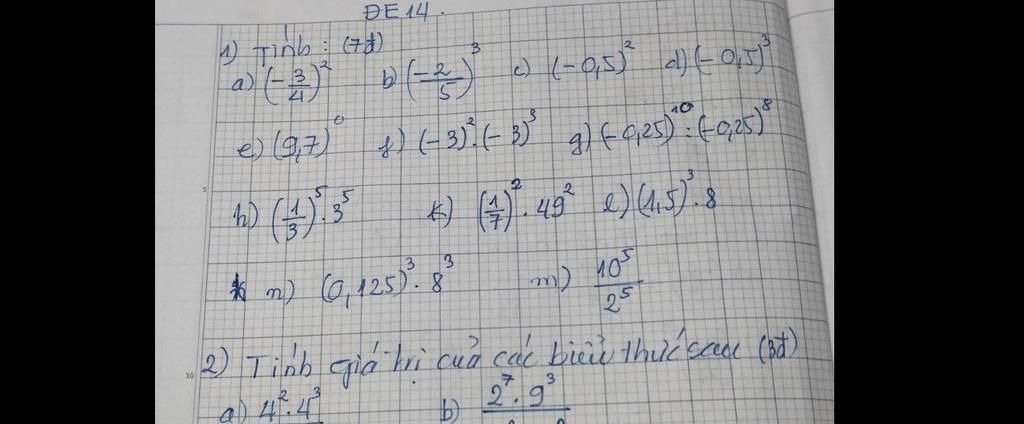 ĐE 14.
1) Tính: (7đ)
a) (-3/4)² b) (-2/5)³ c) (-0,5)² d) (-0,5)³
e) (9,7)⁰ f) (-3)².(-3)³ g) (-0,25)¹⁰:(-0,25)⁸
h) (1/3)⁵.3⁵ k) (1/7)².49² l) (1,5)³.8
n) (0,125)³.8³ m) 10⁵/2⁵
2) Tính giá trị của các biểu thức sau (3đ)
a) 4².4³ b) 2⁷.9³